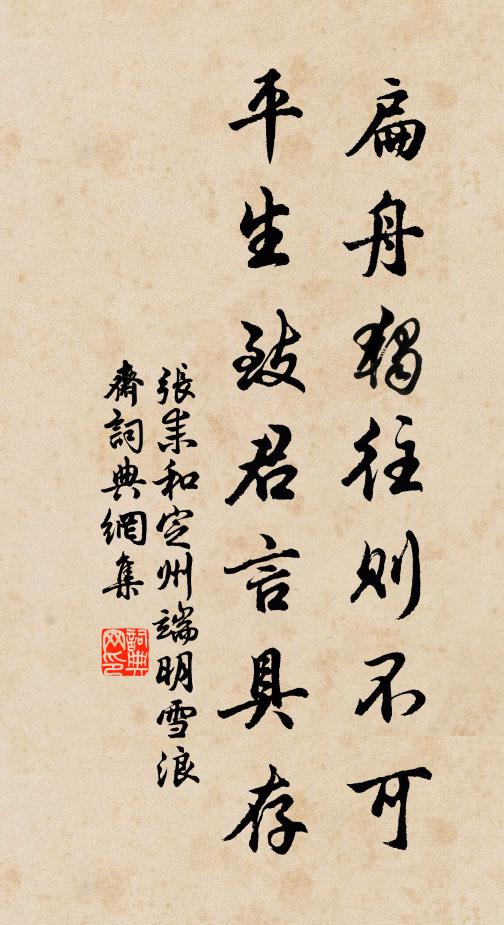 扁舟獨往則不可
平生致君言具存
張耒和定州端明雪浪
齋詞典網集
詞典
网印